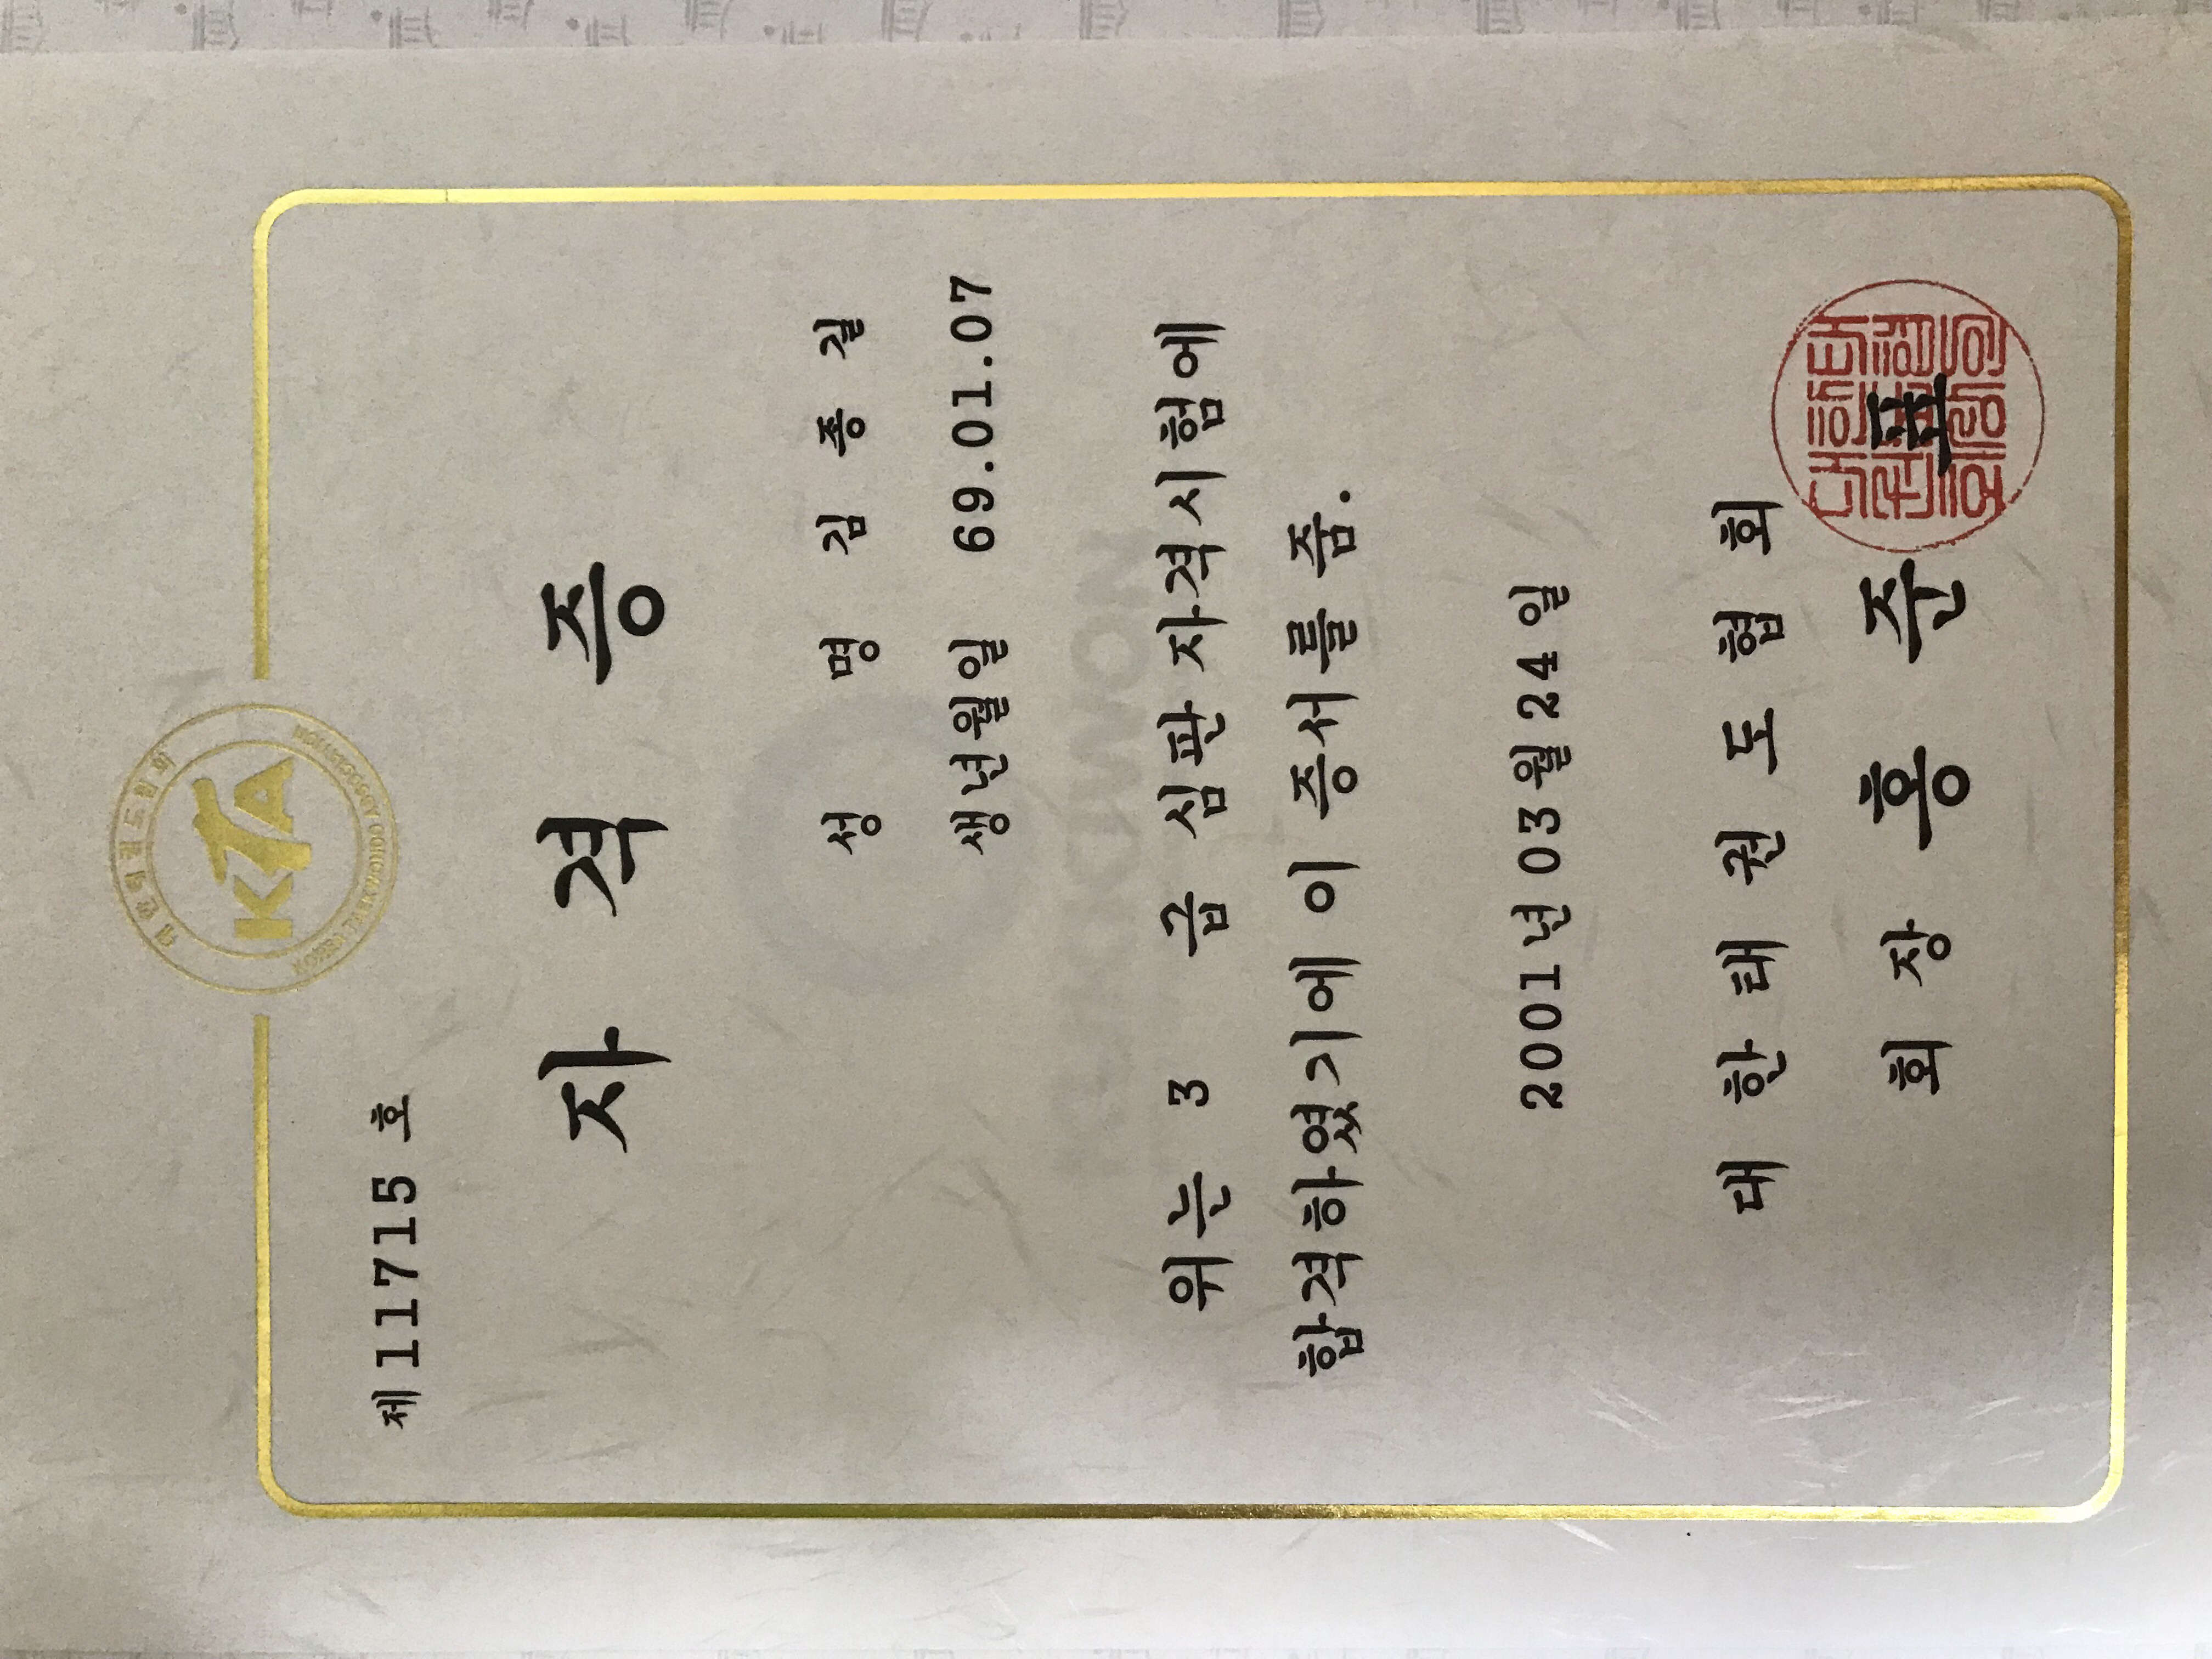 대한태권도협회
KTA
KOREA TAEKWONDO ASSOCIATION
제 11715 호
자 격 증
성 명 김 종 길
생년월일 69.01.07
위는 3 급 심판 자격시험에
합격하였기에 이 증서를 줌.
2001년 03월 24일
대 한 태 권 도 협 회
회 장 홍 준 표